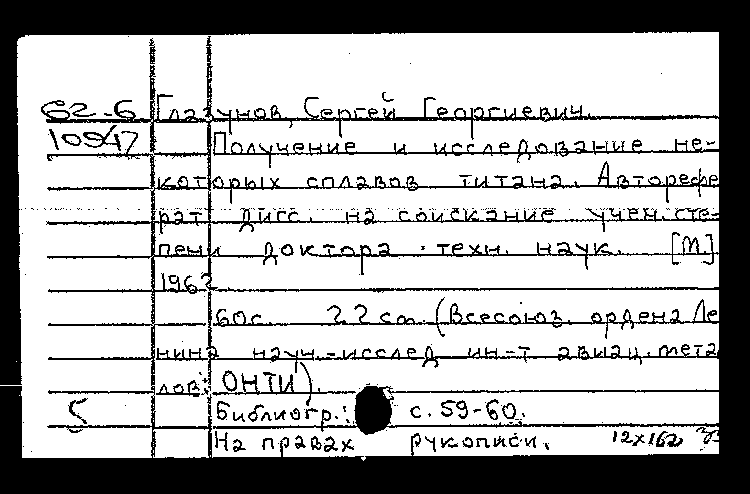 62-6 Глазунов, Сергей Георгиевич.
10947 Получение и исследование не-
которых сплавов титана. Авторефе
рат дисс. на соискание учен. сте-
пени доктора техн. наук. [М]
1962
60с. 22 см. (Всесоюз. ордена Ле
нина науч.-исслед. ин-т авиац. мета
лов. ОНТИ).
5 Библиогр.: с. 59-60.
На правах рукописи. 12X162